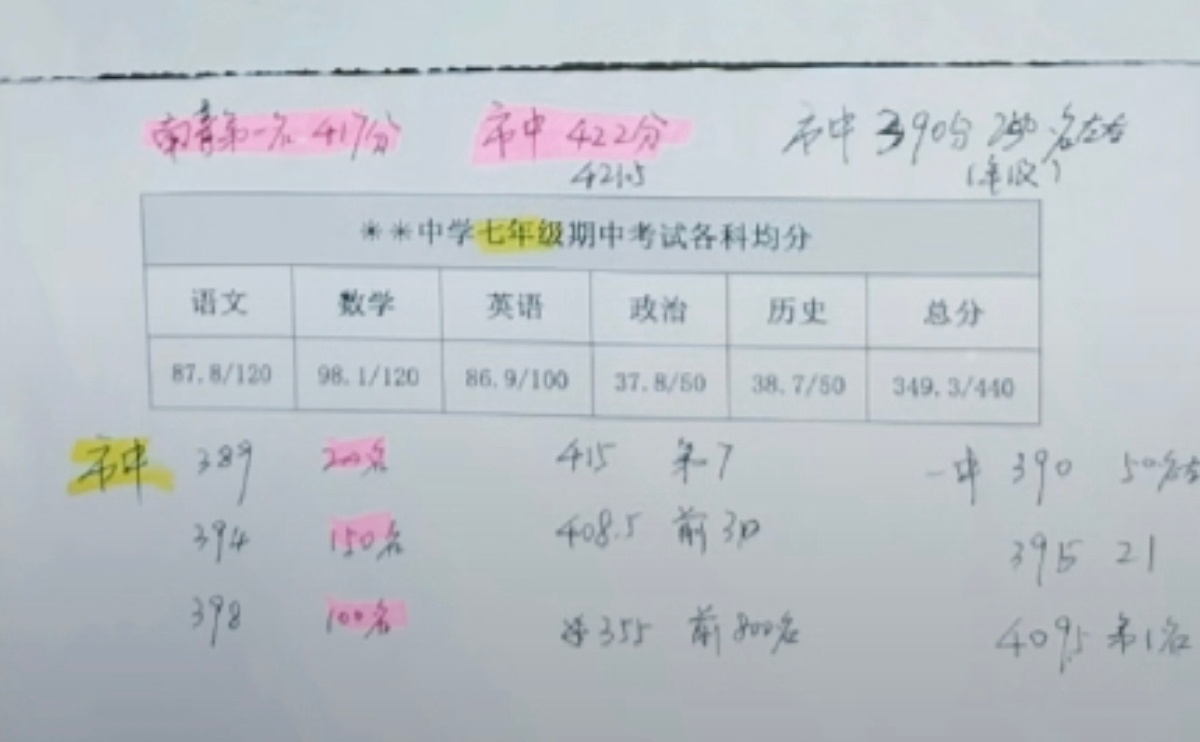 南菁第一名 417分 市中 422分 市中 390分 250名左右
421.5
**中学七年级期中考试各科均分
语文 数学 英语 政治 历史 总分
87.8/120 98.1/120 86.9/100 37.8/50 38.7/50 349.3/440
市中 389 200名 415 第7 一中 390 50名左
394 150名 408.5 前30 395 21
398 100名 355 前800名 409.5 第1名